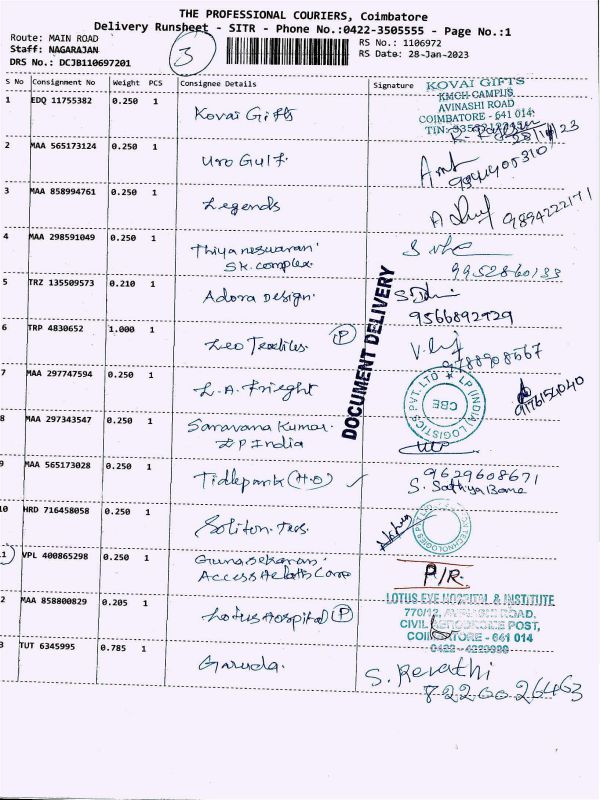 THE PROFESSIONAL COURIERS, Coimbatore
Delivery Runsheet - SITR - Phone No.:0422-3505555 - Page No.:1
Route: MAIN ROAD
Staff: NAGARAJAN
DRS No.: DCJB110697201
3
RS No.: 1106972
RS Date: 28-Jan-2023
S No Consignment No Weight PCS Consignee Details Signature
KOVAI GIFTS
KMCH CAMPUS,
AVINASHI ROAD
COIMBATORE - 641 014
1 EDQ 11755382 0.250 1 Kovai Gifts
2 MAA 565173124 0.250 1 Uro Gulf.
3 MAA 858994761 0.250 1 Legends 9894222171
4 MAA 298591049 0.250 1 Thiyaneswaran
SK.complex. 9952860133
5 TRZ 135509573 0.210 1 Adora Design. 9566892729
6 TRP 4830652 1.000 1 Leo Textiles. P
DOCUMENT DELIVERY
7 MAA 297747594 0.250 1 L.A. Frieght
LP (INDIA) LOGISTICS PVT. LTD
CBE
8 MAA 297343547 0.250 1 Saravana Kumar.
LP India
9 MAA 565173028 0.250 1 Tidlepark (H.O) 9629608671
S. Sathiya Bama
10 HRD 716458058 0.250 1 Soliton Tes.
11 VPL 400865298 0.250 1 Gunasekaran
Access P/R.
2 MAA 858800829 0.205 1 Lotus Hospital P
LOTUS EYE HOSPITAL & INSTITUTE
770/12, AVINASHI ROAD,
CIVIL AERODROME POST,
COIMBATORE - 641 014
3 TUT 6345995 0.785 1 Garuda. S. Revathi
8220026463